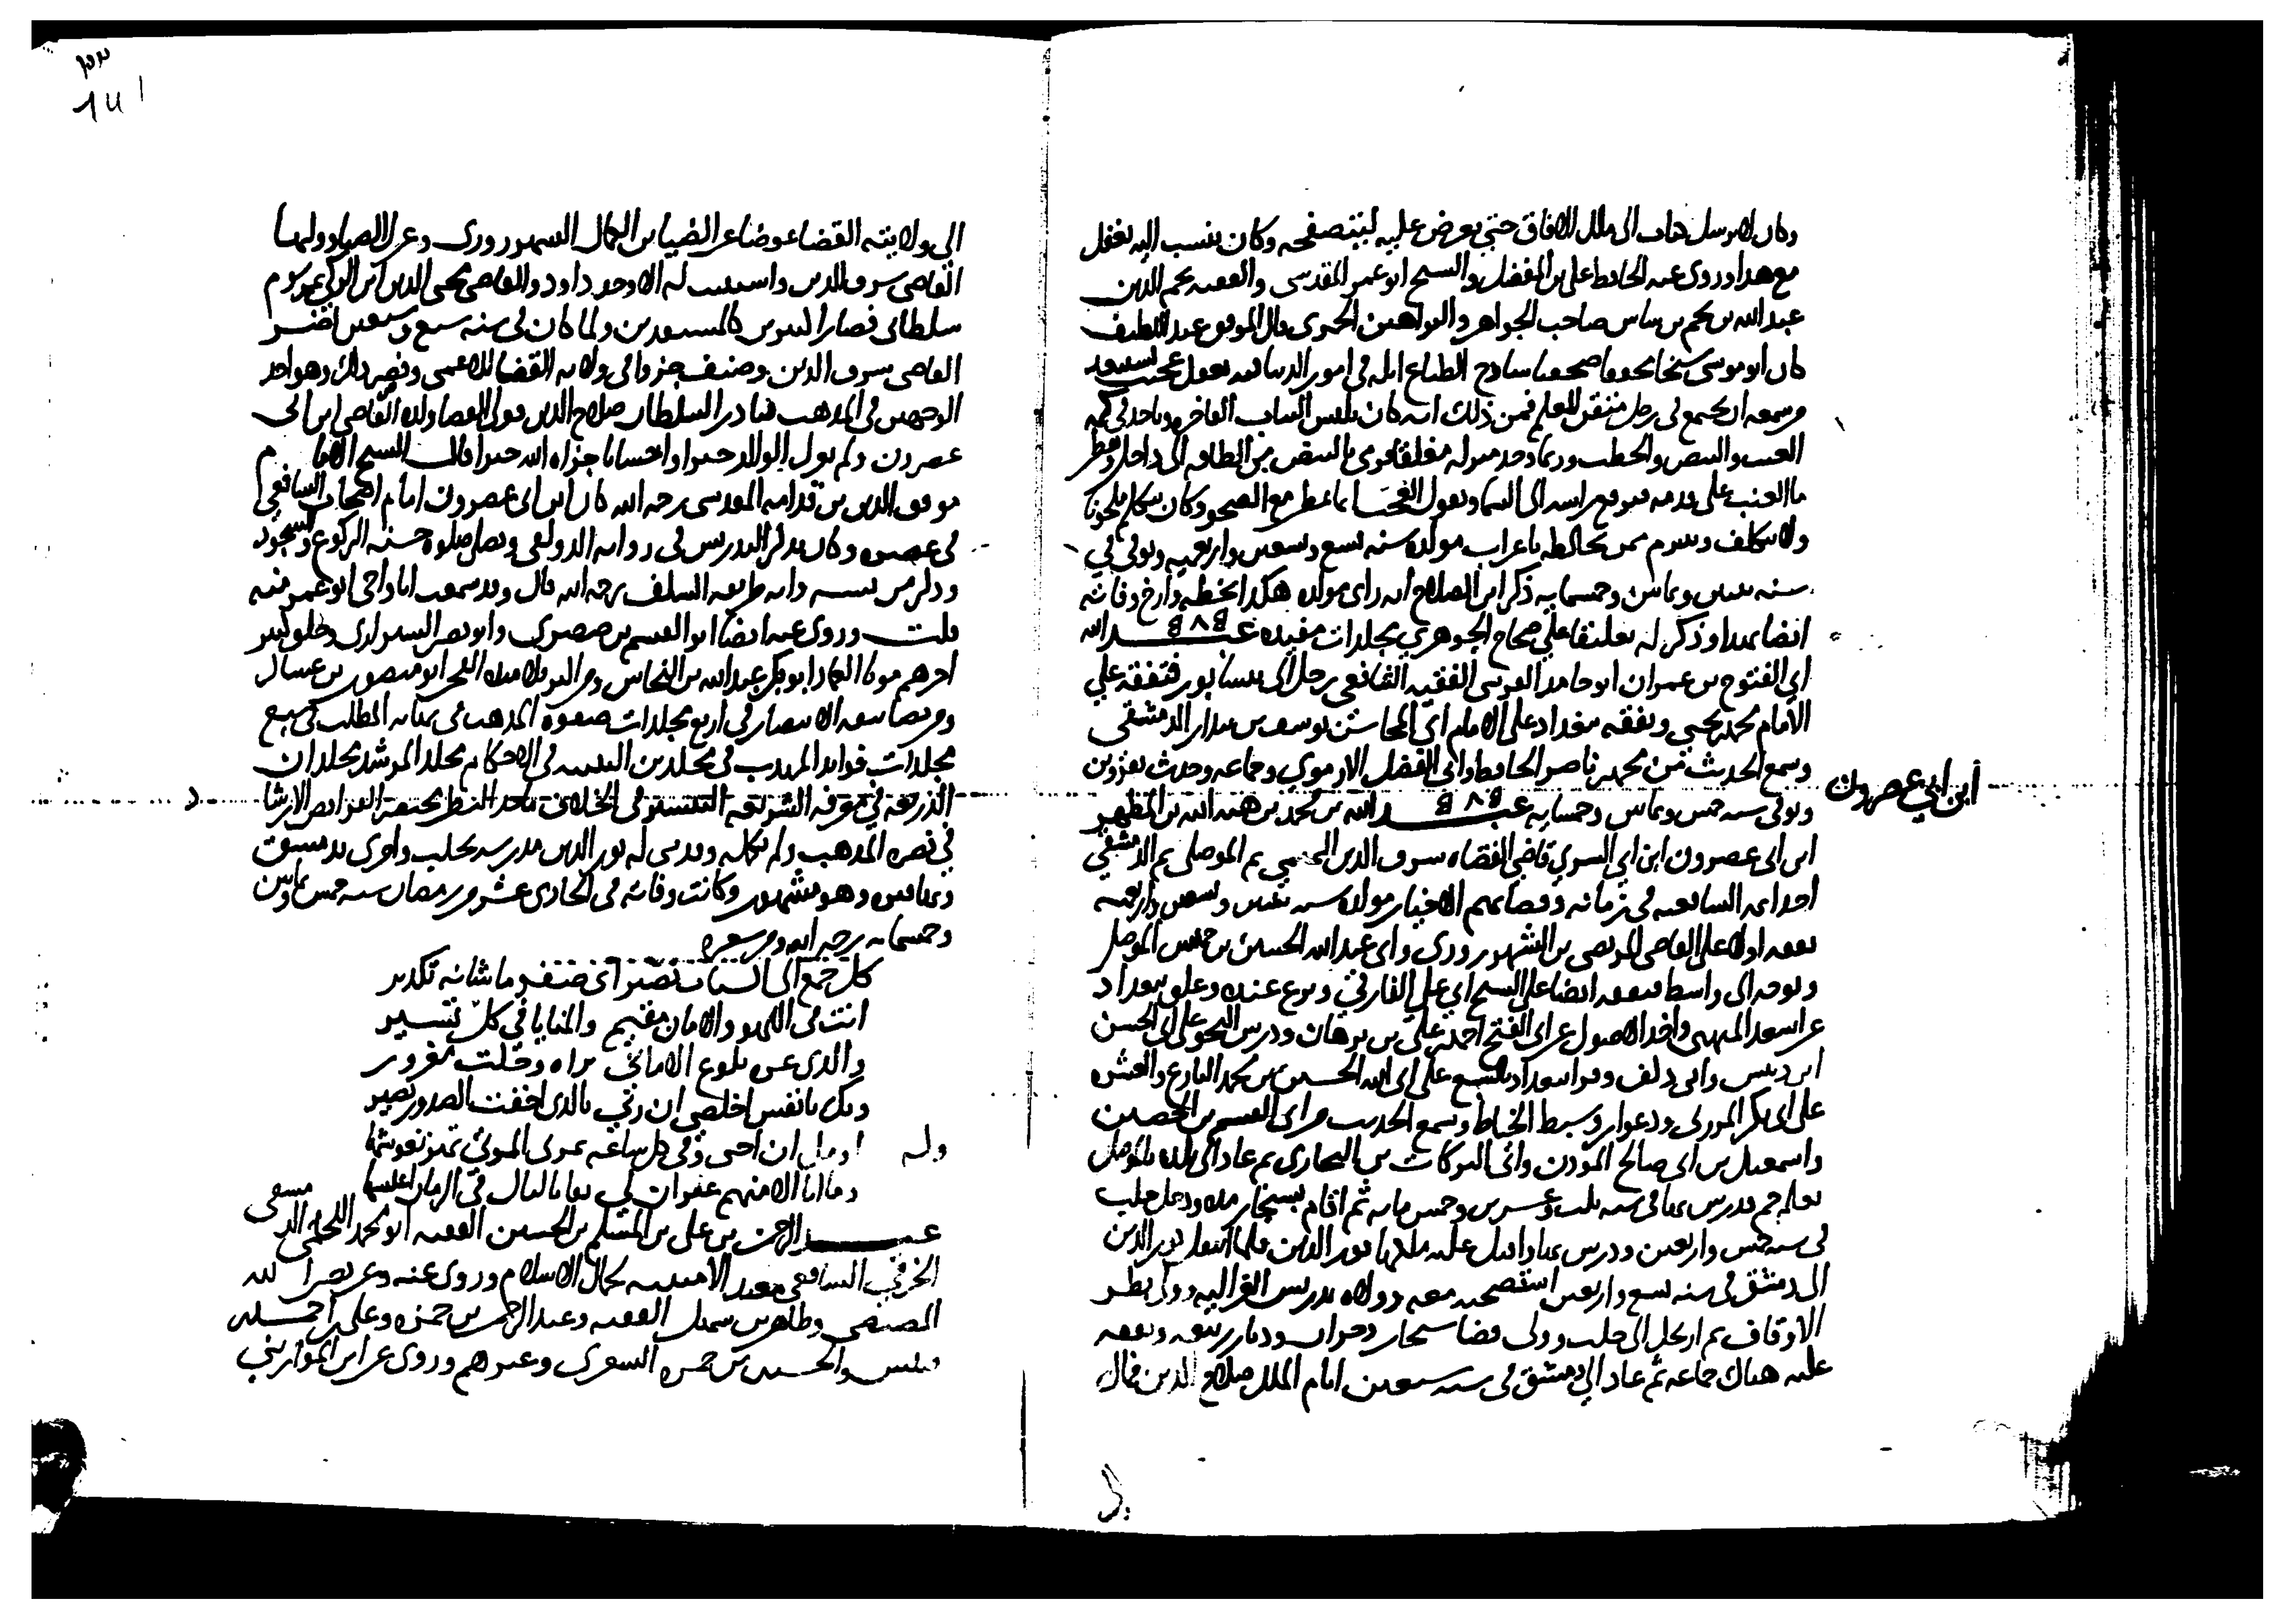 وكان لا يرسل كتاب الى ملك الافاق حتى يعرض عليه ليتصفحه وكان ينسب اليه تغفل
مع هذا وروى عنه الحافظ على بن المفضل والشيخ ابو عمر المقدسى والفقيه نجم الدين
عبد الله بن نجم بن شاس صاحب الجواهر قال الموفق عبد اللطيف
كان ابو موسى شيخا ساذج الطباع ابله فى امور الدنيا
يجتمع فى رجل متقن للعلم فمن ذلك انه كان يلبس الثياب الفاخره وياخذ فى كمه
العنب والبيض والحطب وربما وجد منزله مغلقا فرمى بالبيض من الطاقه الى داخل وقطر
ما العنب على قدمه فيرفع راسه الى السما ويقول العجب انها تمطر مع الصحو وكان يتكلم ملحونا
ولا يتكلف ويتبرم ممن يخاطبه باعراب مولده سنه تسع وتسعين واربعميه وتوفى فى
سنه اثنين وثمانين وخمسمايه ذكر ابن الصلاح انه راى مولده هكذا بخطه وارخ وفاته
ايضا وذكر له تعليقا على صحاح الجوهري مجلدات مفيده عبد الله
ابى الفتوح بن عمران ابو حامد القزوينى الفقيه الشافعى رحل الى نيسابور فتفقه على
الامام محمد بن يحيى وتفقه ببغداد على الامام ابى المحاسن يوسف بن بندار الدمشقى
وسمع الحديث من محمد بن ناصر الحافظ وابى الفضل الارموي وجماعه وحدث بقزوين
وتوفى سنه خمس وثمانين وخمسمايه عبد الله بن محمد بن هبه الله بن المطهر
ابن ابي عصرون
ابن ابى عصرون ابن ابى السري قاضى القضاه شرف الدين التميمي ثم الموصلى ثم الدمشقى
احد ايمه الشافعيه فى زمانه وقضاتهم الاخيار مولده سنه ثنتين وتسعين واربعميه
تفقه اولا على القاضى المرتضى بن الشهرزورى وابى عبد الله الحسين بن خميس الموصلى
وتوجه الى واسط فتفقه ايضا على الشيخ ابي على الفارقي وبرع عنده وعلق ببغداد
عن اسعد الميهنى واخذ الاصول عن ابى الفتح احمد بن على بن برهان ودرس النحو على ابى الحسن
ابن دبيس وابى دلف وقرا ببغداد بالسبع على ابى عبد الله الحسين بن محمد البارع والعشر
على ابى بكر المزرفى ودعوان وسبط الخياط وسمع الحديث من ابى القسم بن الحصين
واسمعيل بن ابى صالح المؤذن وابى البركات بن البخارى ثم عاد الى بلده بالموصل
بعلم جم ودرس بها فى سنه ثلث وعشرين وخمس مايه ثم اقام بسنجار مده ودخل حلب
فى سنه خمس واربعين ودرس بها واقبل عليه ملكها نور الدين فلما انتقل نور الدين
الى دمشق فى سنه تسع واربعين استصحبه معه وولاه تدريس الغزاليه وولى نظر
الاوقاف ثم ارتحل الى حلب وولى قضا سنجار وحران وديار ربيعه وتفقه
عليه هناك جماعه ثم عاد الى دمشق فى سنه سبعين ايام الملك صلاح الدين فمال
الى ولايته القضا عوضا عن الضيا بن الكمال الشهرزورى وعزل الضيا ووليها
القاضى شرف الدين واستنيب له الاوحد داود والقاضى محيى الدين ابن الزكى بمرسوم
سلطانى ولما كان فى سنه سبع وسبعين اضر
القاضى شرف الدين وصنف جزوا فى ولايه القضا للاعمى وهو احد
الوجهين فى المذهب السلطان صلاح الدين فولى القضا ولده القاضى ابن ابى
عصرون ولم يعزل الوالد جبرا واحسانا جزاه الله خيرا قال الشيخ الامام
موفق الدين بن قدامه المقدسى رحمه الله كان ابن ابى عصرون امام اصحاب الشافعى
فى عصره وكان يذكر التدريس فى زاويه الدولعى ويصلى صلاه حسنه الركوع والسجود
طريقه السلف رحمه الله قال وقد سمعت انا واخى ابو عمر منه
قلت وروى عنه ايضا ابو القسم بن صصرى وابو نصر الشيرازى وخلق كثير
اخرهم موتا العماد ابو بكر عبد الله بن النحاس
ومن تصانيفه الانتصار فى اربع مجلدات صفوه المذهب فى نهايه المطلب فى سبع
مجلدات فوايد المهذب فى مجلدين التنبيه فى الاحكام مجلد المرشد مجلدان
الذريعه في معرفه الشريعه التيسير فى الخلاف ماخذ النظر مختصر الفرايض الارشاد
في نصره المذهب ولم يكمله وقد بنى له نور الدين مدرسه بحلب واخرى بدمشق
وهو مشهور وكانت وفاته فى الحادى عشر من رمضان سنه خمس وثمانين
وخمسمايه رحمه الله ومن شعره
كل جمع الى الشتات يصير اى صفو ما شانه تكدير
انت فى اللهو والامانى مقيم والمنايا في كل تسير
والذى غره بلوغ الامانى
ويك يا نفس اخلصى ان ربي بالذى اخفت الصدور بصير
وله اومل ان احيى وفى كل ساعه تمر بى الموتى تهز نعوشها
وما انا الا منهم غير ان لى بقايا ليال فى الزمان اعيشها
عبد الرحمن بن على بن المسلم بن الحسين الفقيه ابو محمد اللخمى الدمشقى
الخرقى الشافعى معيد الامينيه لجمال الاسلام وروى عنه وعن نصر الله
المصيصى وطاهر بن سهل الفقيه وعبد الرحمن بن حمزه وعلى بن احمد
قبيس والحسين بن حمزه الشعيرى وغيرهم وروى عن ابن الموازينى